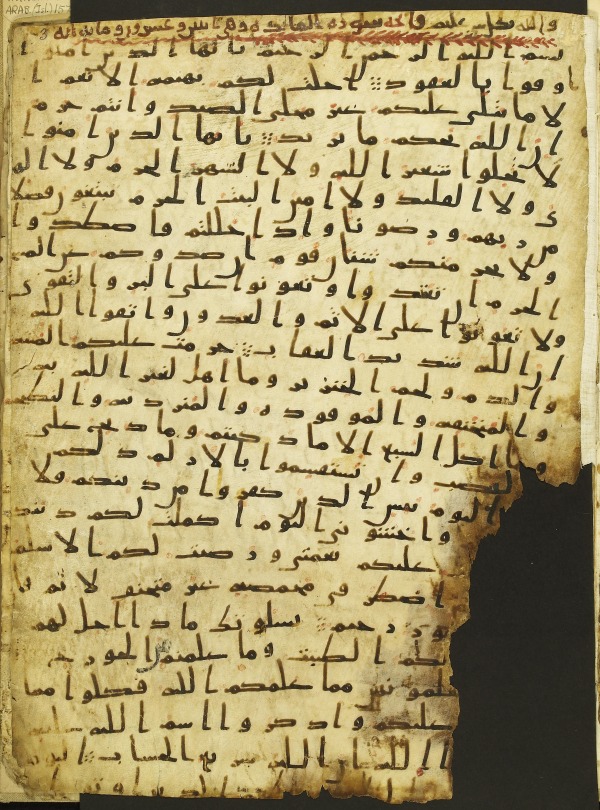 والله بكل شى عليم فاتحه سوره المائده وهى مائه وعشرون و
بسم الله الرحمن الرحيم يايها الذين امنوا ا
وفوا بالعقود احلت لكم بهيمه الانعم ا
لا ما يتلى عليكم غير محلى الصيد وانتم حرم
ان الله يحكم ما يريد يايها الذين امنوا
لا تحلوا شعير الله ولا الشهر الحرم ولا الهد
ى ولا القليد ولا امين البيت الحرم يبتغون فضلا
من ربهم ورضونا واذا حللتم فاصطدوا
ولا يجرمنكم شنان قوم ان صدوكم عن المسجد
الحرم ان تعتدوا وتعونوا على البر والتقوى
ولا تعونوا على الاثم والعدون واتقوا الله
ان الله شديد العقاب حرمت عليكم الميته
والدم ولحم الخنزير وما اهل لغير الله به
والمنخنقه والموقوذه والمترديه والنطيحه
وما اكل السبع الا ما ذكيتم وما ذبح على
النصب وان تستقسموا بالازلم ذلكم
اليوم يئس الذين كفروا من دينكم فلا
واخشون اليوم اكملت لكم دينكم
عليكم نعمتى ورضيت لكم الاسلم
اضطر فى مخمصه غير متجنف لاثم
ور رحيم يسلونك ماذا احل لهم
لكم الطيبت وما علمتم من الجورح
تعلمونهن مما علمكم الله فكلوا مما
عليكم واذكروا اسم الله عليه
ا الله ان الله سريع الحساب اليوم